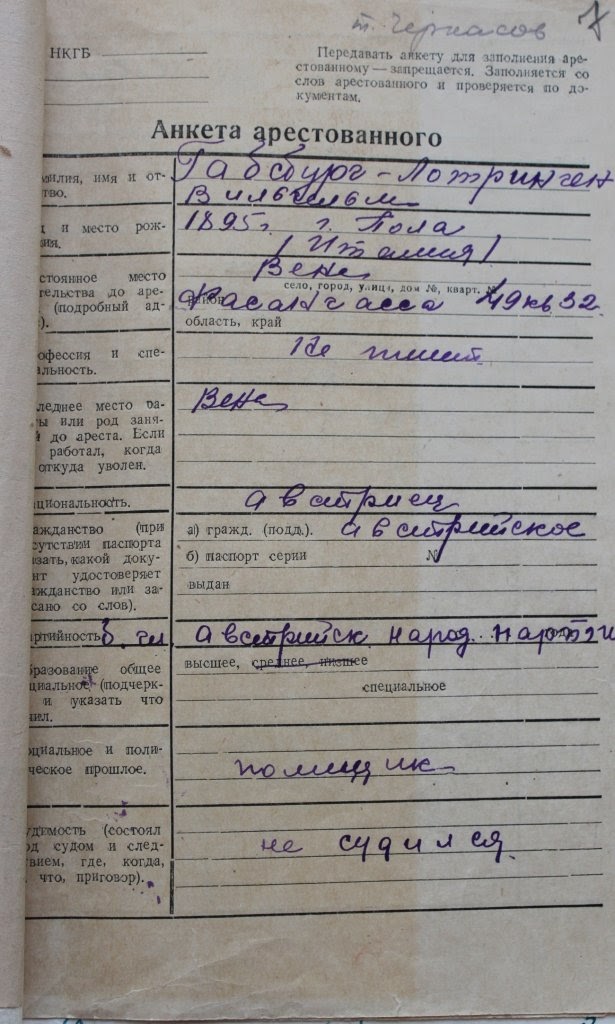 т. Черкасов 7
НКГБ
Передавать анкету для заполнения аре-
стованному — запрещается. Заполняется со
слов арестованного и проверяется по до-
кументам.
Анкета арестованного
милия, имя и от-
тво.
Габсбург-Лотринген
Вильгельм
д и место рож-
ия.
1895г. г. Пола
/Италия/
стоянное место
тельства до аре-
(подробный ад-
с).
Вена
село, город, улица, дом №, кварт. №
район
Фасангасса 49 кв 32
область, край
рофессия и спе-
альность.
Не имеет
следнее место ра-
ты или род заня-
й до ареста. Если
работал, когда
откуда уволен.
Вена
циональность.
австриец
ажданство (при
сутствии паспорта
зать, какой доку-
нт удостоверяет
ажданство или за-
сано со слов).
а) гражд. (подд.). австрийское
б) паспорт серии №
выдан
артийность б. чл. австрийск. народ. партии
бразование общее
циальное (подчерк-
и указать что
чил.
высшее, среднее, низшее
специальное
оциальное и поли-
ческое прошлое.
помещик
удимость (состоял
од судом и след-
твием, где, когда,
что, приговор).
не судился